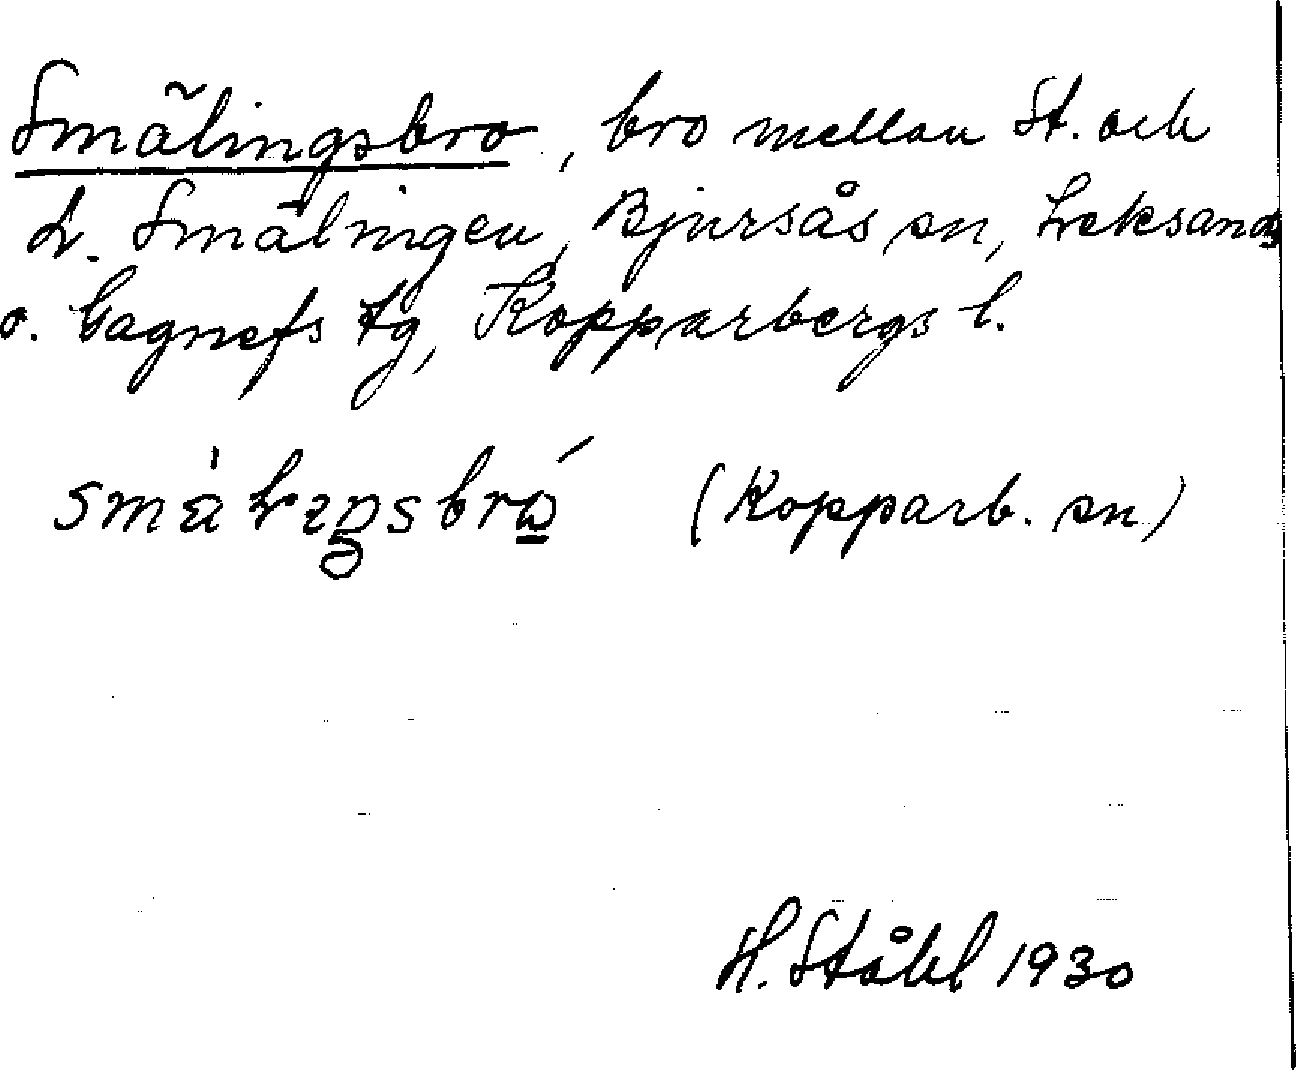 Smälingsbro, bro mellan St. och
L. Smälingen, Bjursås sn, Leksands
o. Gagnefs tg, Kopparbergs l.
(Kopparb. sn)
H. Ståhl 1930